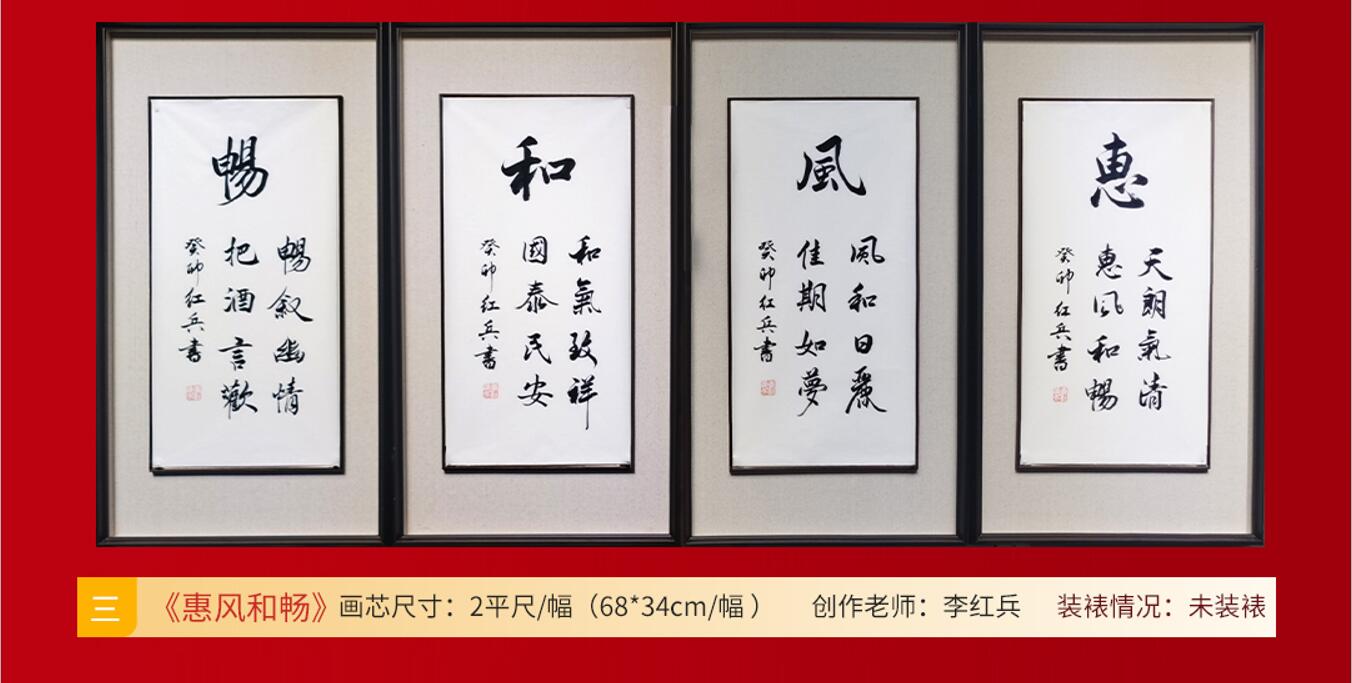 惠
天朗氣清
惠风和暢
癸卯红兵書
風
风和日麗
佳期如夢
癸卯红兵書
和
和氣致祥
國泰民安
癸卯红兵書
暢
暢叙幽情
把酒言歡
癸卯红兵書
三
《惠风和畅》画芯尺寸：2平尺/幅（68*34cm/幅） 创作老师：李红兵 装裱情况：未装裱